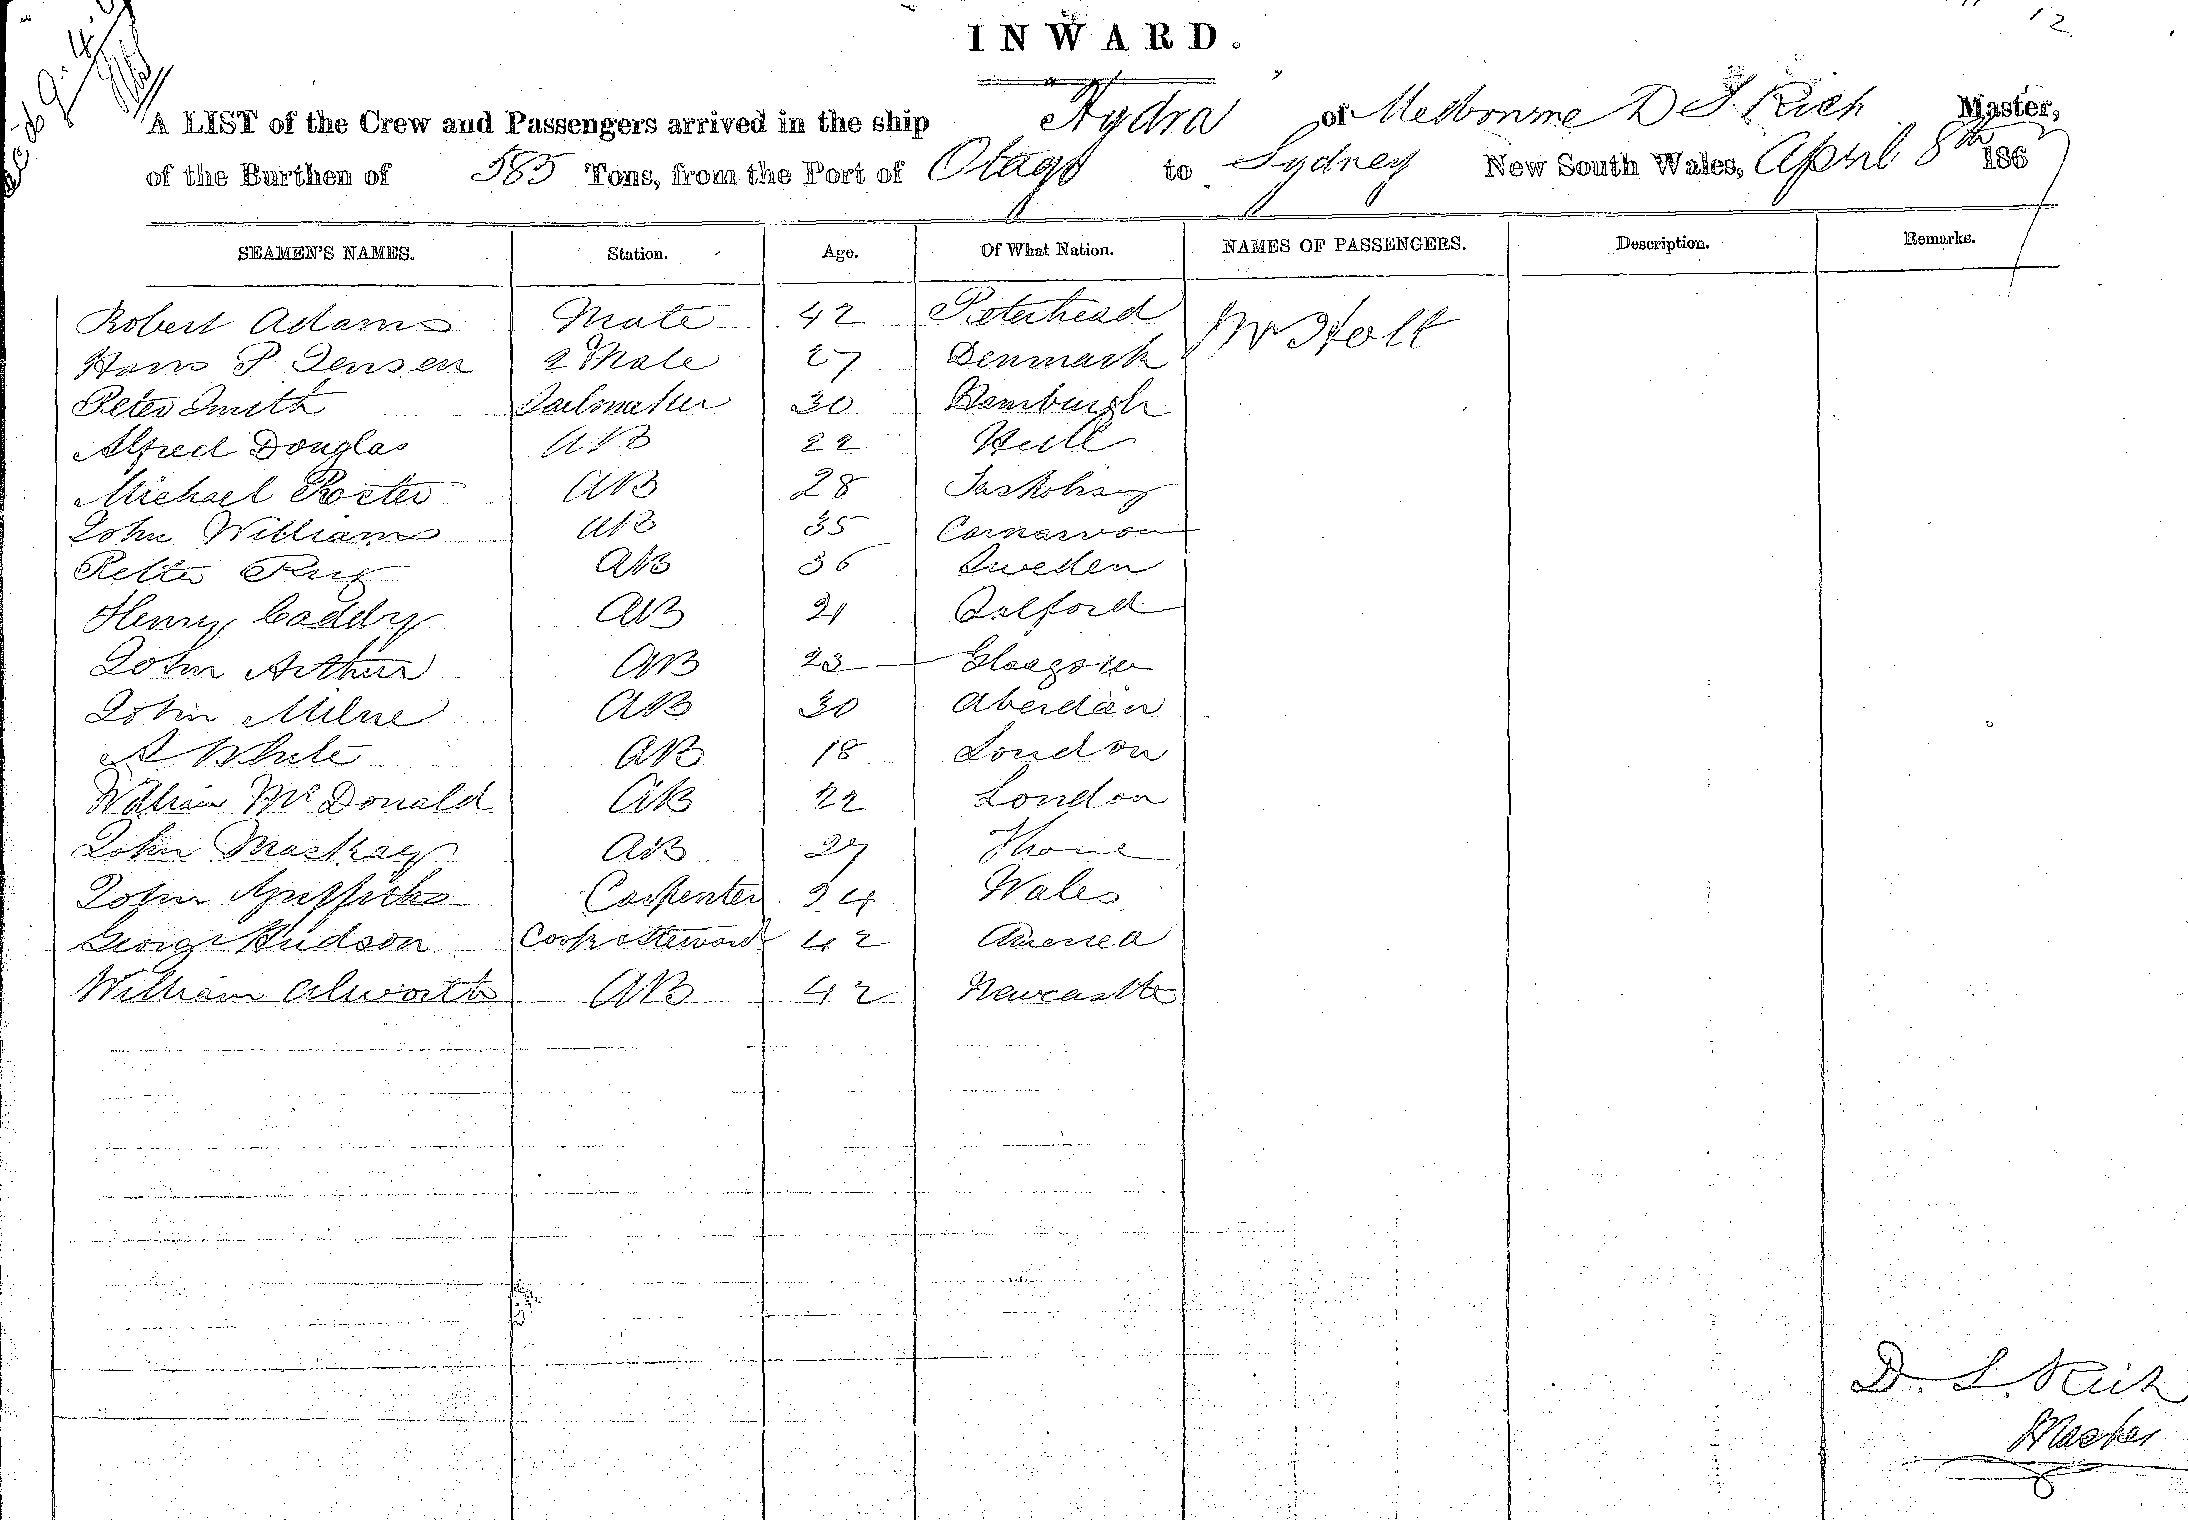 12
INWARD.
A LIST of the Crew and Passengers arrived in the ship Hydra of Melbourne D S Rich Master,
of the Burthen of 585 Tons, from the Port of Otago to Sydney New South Wales, April 8th 1867
SEAMEN'S NAMES. Station. Age. Of What Nation. NAMES OF PASSENGERS. Description. Remarks.
Robert Adams Mate 42 Peterhead Mr Holt
Hans P. Jensen 2 Mate 27 Denmark
Peter Smith Sailmaker 30 Hamburgh
Alfred Douglas AB 22 Hull
Michael AB 28
John Williams AB 35 Carnarvon
Petter AB 36 Sweden
Henry Caddy AB 21
John Arthur AB 23 Glasgow
John Milne AB 30 Aberdeen
A White AB 18 London
William McDonald AB 22 London
John Mackay AB 27
John Griffiths Carpenter 24 Wales
George Hudson Cook & Steward 42 America
William Alworth AB 42 Newcastle
D. S. Rich
Master